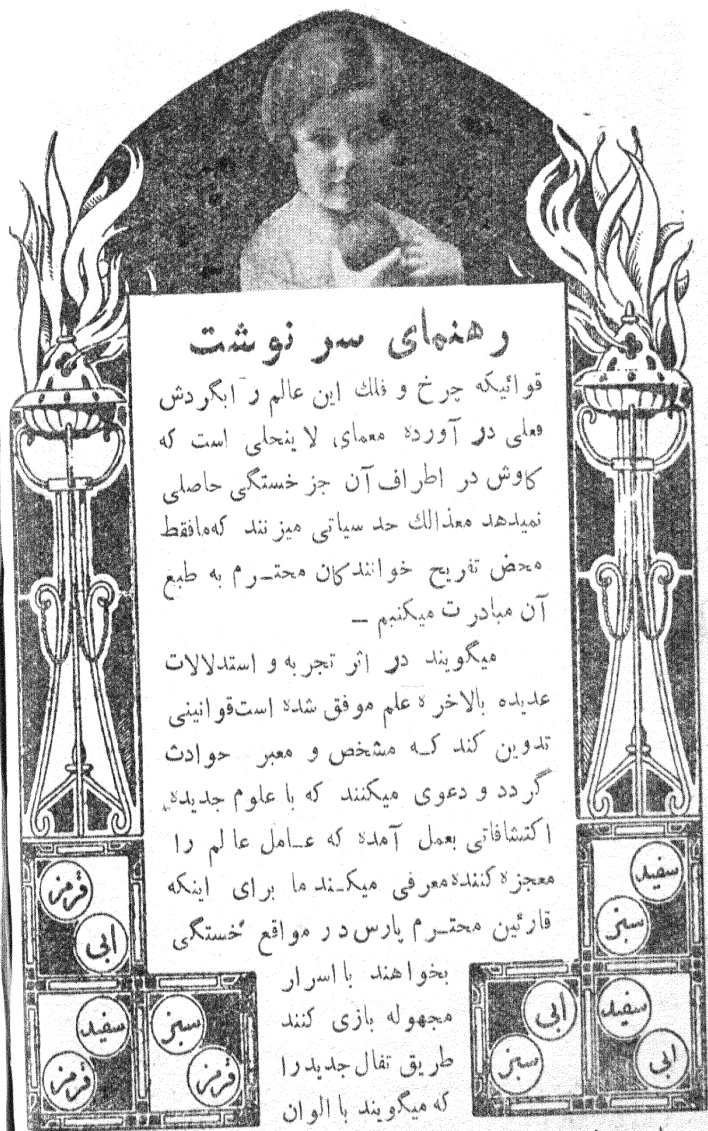 رهنمای سر نوشت
قوائیکه چرخ و فلك این عالم را بگردش
فعلی در آورده معمای لا ینحلی است که
کاوش در اطراف آن جز خستگی حاصلی
نمیدهد معذالك حد سیاتی میز نند که مافقط
محض تفریح خوانندکان محتـرم به طبع
آن مبادرت میکنیم ـ
میگویند در اثر تجربه و استدلالات
عدیده بالاخره علم موفق شده است قوانینی
تدوین کند کـه مشخص و معبر حوادث
گردد و دعوی میکنند که با علوم جدیده
اکتشافاتی بعمل آمده که عـامل عالم را
معجزه کننده معرفی میکـند ما برای اینکه
قارئین محتـرم پارس در مواقع خستگی
بخواهند با اسرار
مجهوله بازی کنند
طریق تفال جدید را
که میگویند با الوان
سفید
سبز
سفید
ابی
ابی
سبز
قرمز
ابی
سبز
قرمز
سفید
قرمز